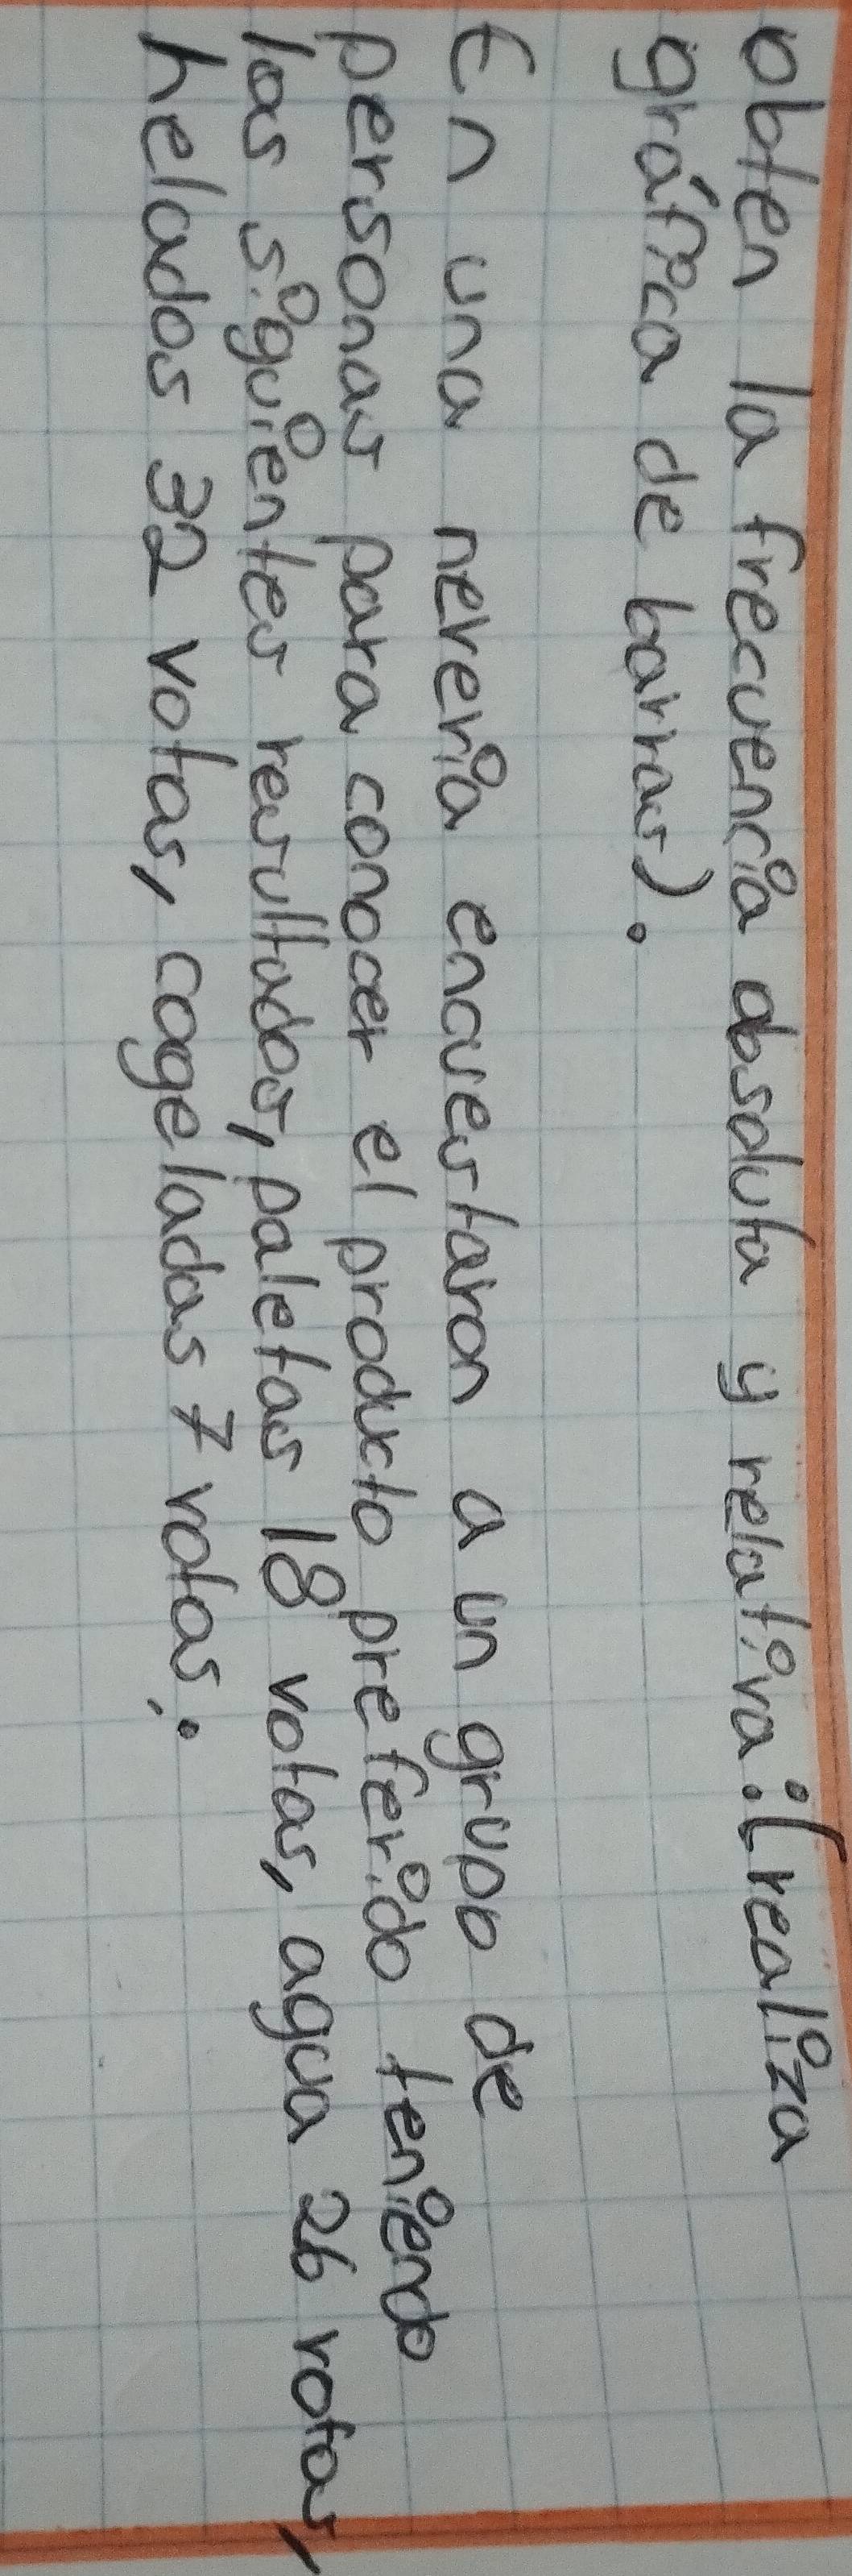 obten la frecuencia absoluta y relativa:(realiza
gráfica de barras).
En una nevería encuestaron a un grupo de
personas para conocer el producto preferido teniendo
las siguientes resultados, paletas 18 votas, agua 26 votas,
helados 32 votas, cogeladas 7 votas;.